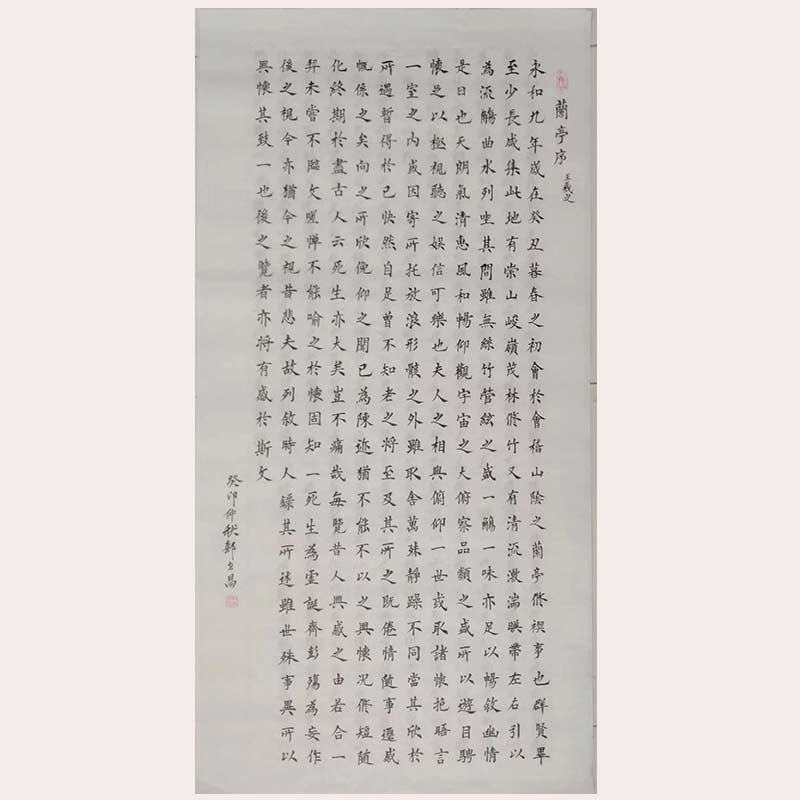 蘭亭序
王羲之
永和九年歲在癸丑暮春之初會於會稽山陰之蘭亭修禊事也群賢畢
至少長咸集此地有崇山峻嶺茂林修竹又有清流激湍暎帶左右引以
為流觴曲水列坐其間雖無絲竹管絃之盛一觴一咏亦足以暢敘幽情
是日也天朗氣清惠風和暢仰觀宇宙之大俯察品類之盛所以遊目騁
懷足以極視聽之娛信可樂也夫人之相與俯仰一世或取諸懷抱晤言
一室之內或因寄所托放浪形骸之外雖取舍萬殊靜躁不同當其欣於
所遇暫得於己快然自足曾不知老之將至及其所之既倦情隨事遷感
慨係之矣向之所欣俛仰之間已為陳迹猶不能不以之興懷況修短隨
化終期於盡古人云死生亦大矣豈不痛哉每覽昔人興感之由若合一
契未嘗不臨文嗟悼不能喻之於懷固知一死生為虛誕齊彭殤為妄作
後之視今亦猶今之視昔悲夫故列敘時人錄其所述雖世殊事異所以
興懷其致一也後之覽者亦將有感於斯文
癸卯仲秋郭昌